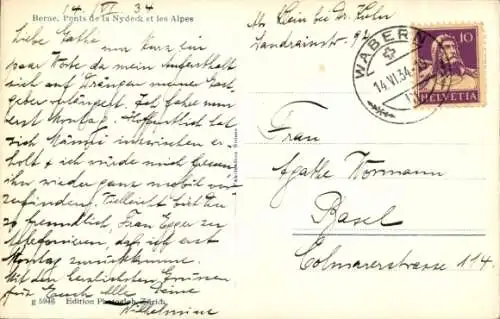 14. VI 34
Berne. Ponts de la Nydeck et les Alpes
Liebe Gathe
nur kurz ein
paar Worte da mein Aufenthalt
sich auf Drängen meiner Gast-
geber verlängert. Ich fahre nun
erst Montag. Hoffentlich hat
sich Männe inzwischen er-
holt & ich würde mich freuen
ihn wieder ganz mobil vor-
zufinden. Vielleicht bist Du
so freundlich Frau Egger zu
telefonieren, daß ich erst
Montag zurückkomme.
Mit den herzlichsten Grüssen
für Euch Alle Deine
Wilhelmine
g 5946 Edition Photoglob, Zürich
Abs. Klein bei Dr. Hohn
Landrainstr. 92
WABERN
14.VI.34
10
HELVETIA
Frau
Agathe Wormann
Basel
Colmarerstrasse 114.